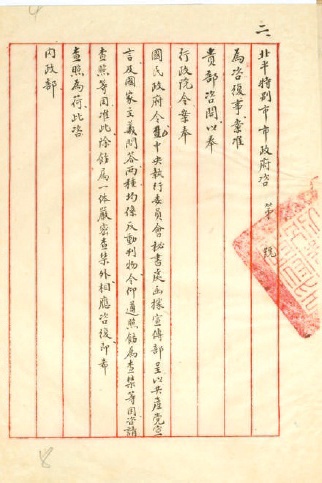 二、北平特別市市政府咨 第 號
為咨復事案准
貴部咨開以奉
行政院令案奉
國民政府令准中央執行委員會秘書處函據宣傳部呈以共產黨宣
言及國家主義問答兩種均係反動刊物令仰通照飭為查禁等因咨請
查照等因准此除飭屬一依嚴密查禁外相應咨復即希
查照為荷此咨
內政部